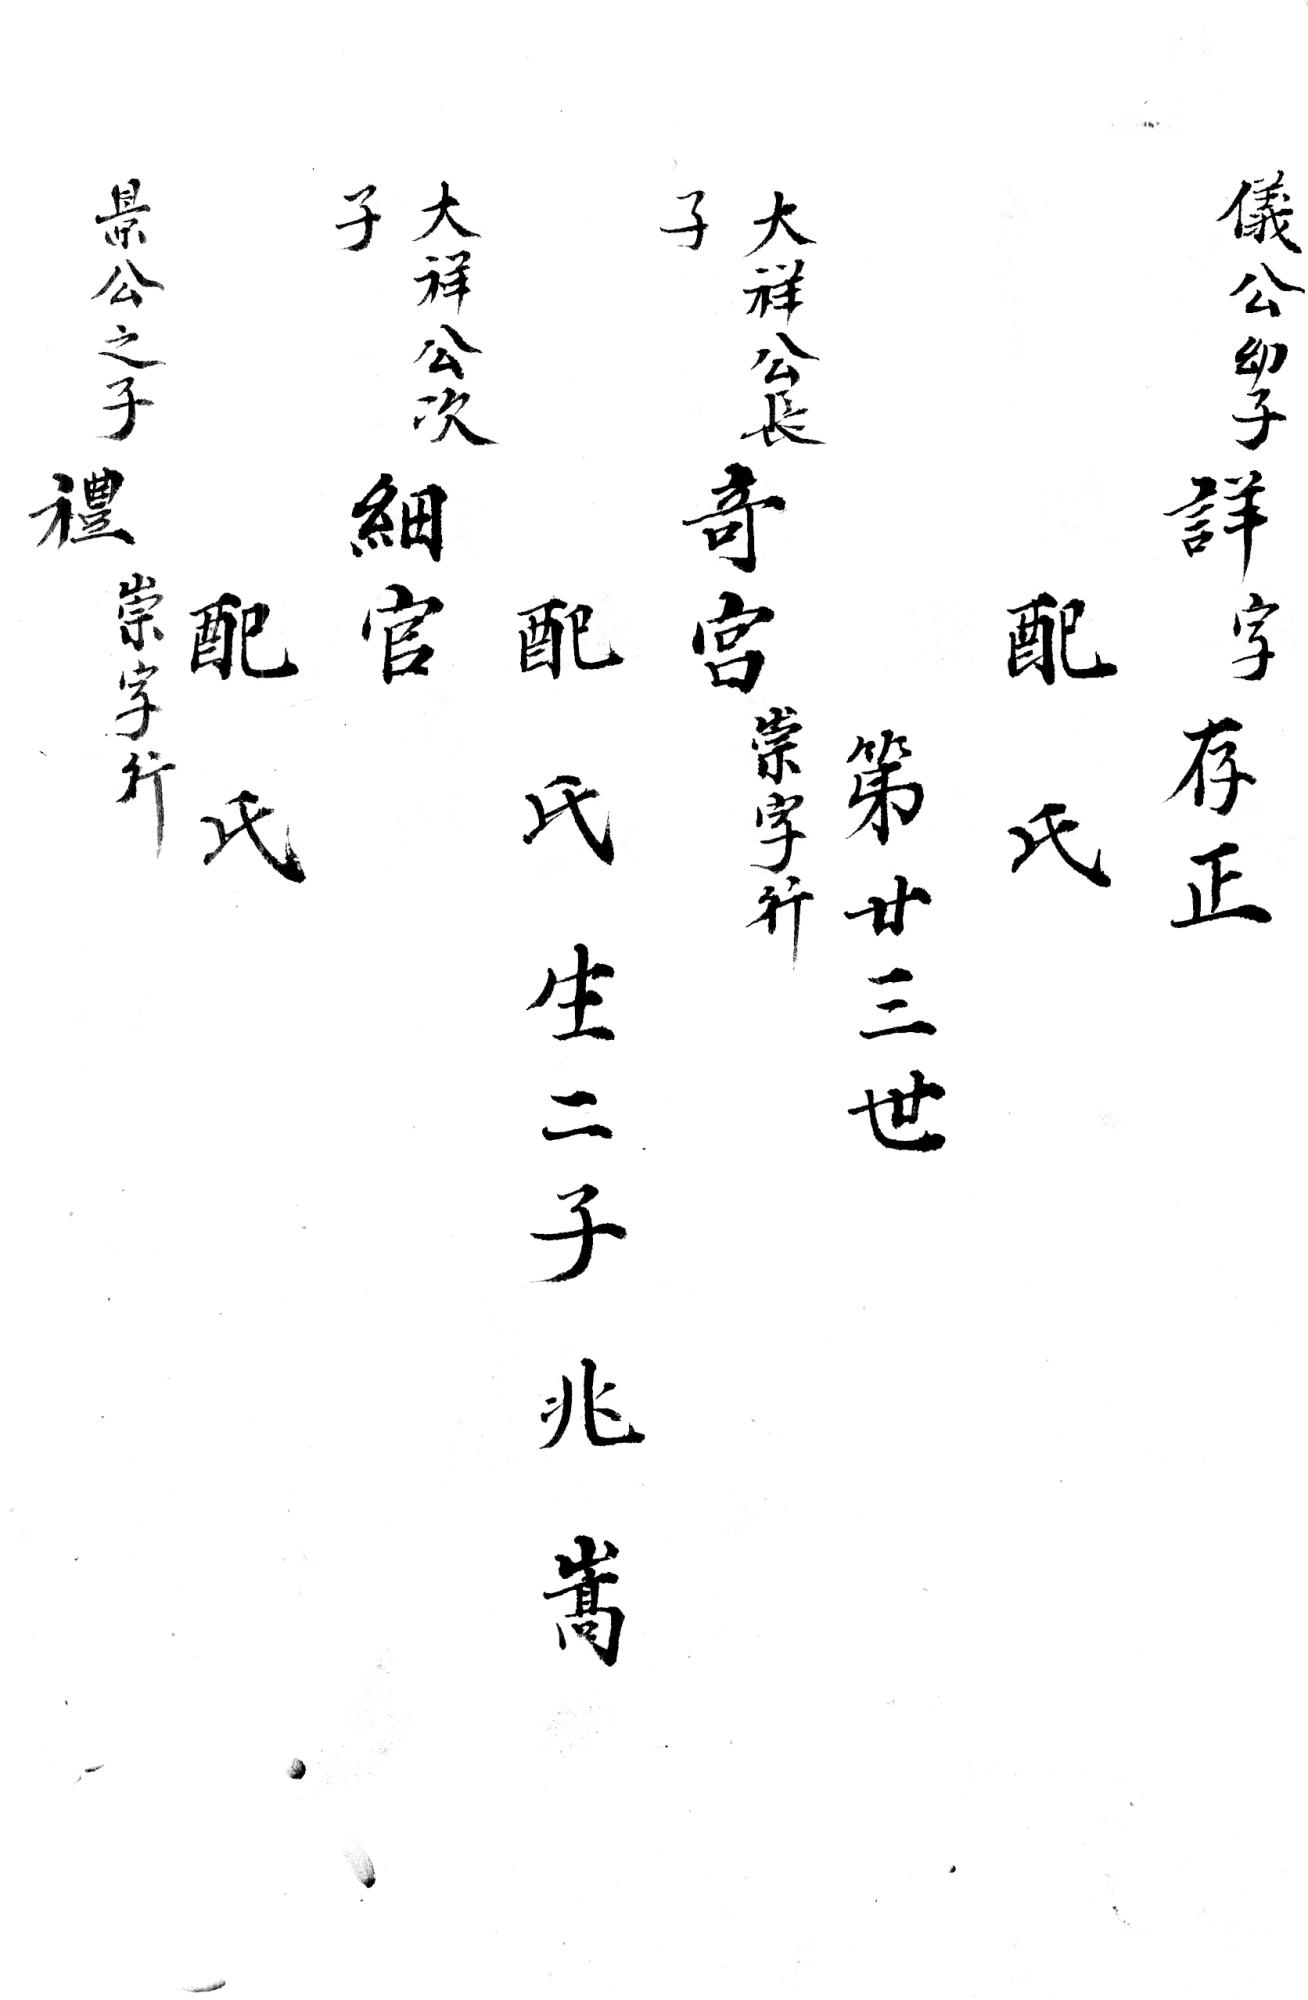 儀公幼子
詳字存正
配氏
第廿三世
大祥公長子
奇宫崇字行
配氏生二子兆嵩
大祥公次子
細官
配氏
景公之子
禮崇字行